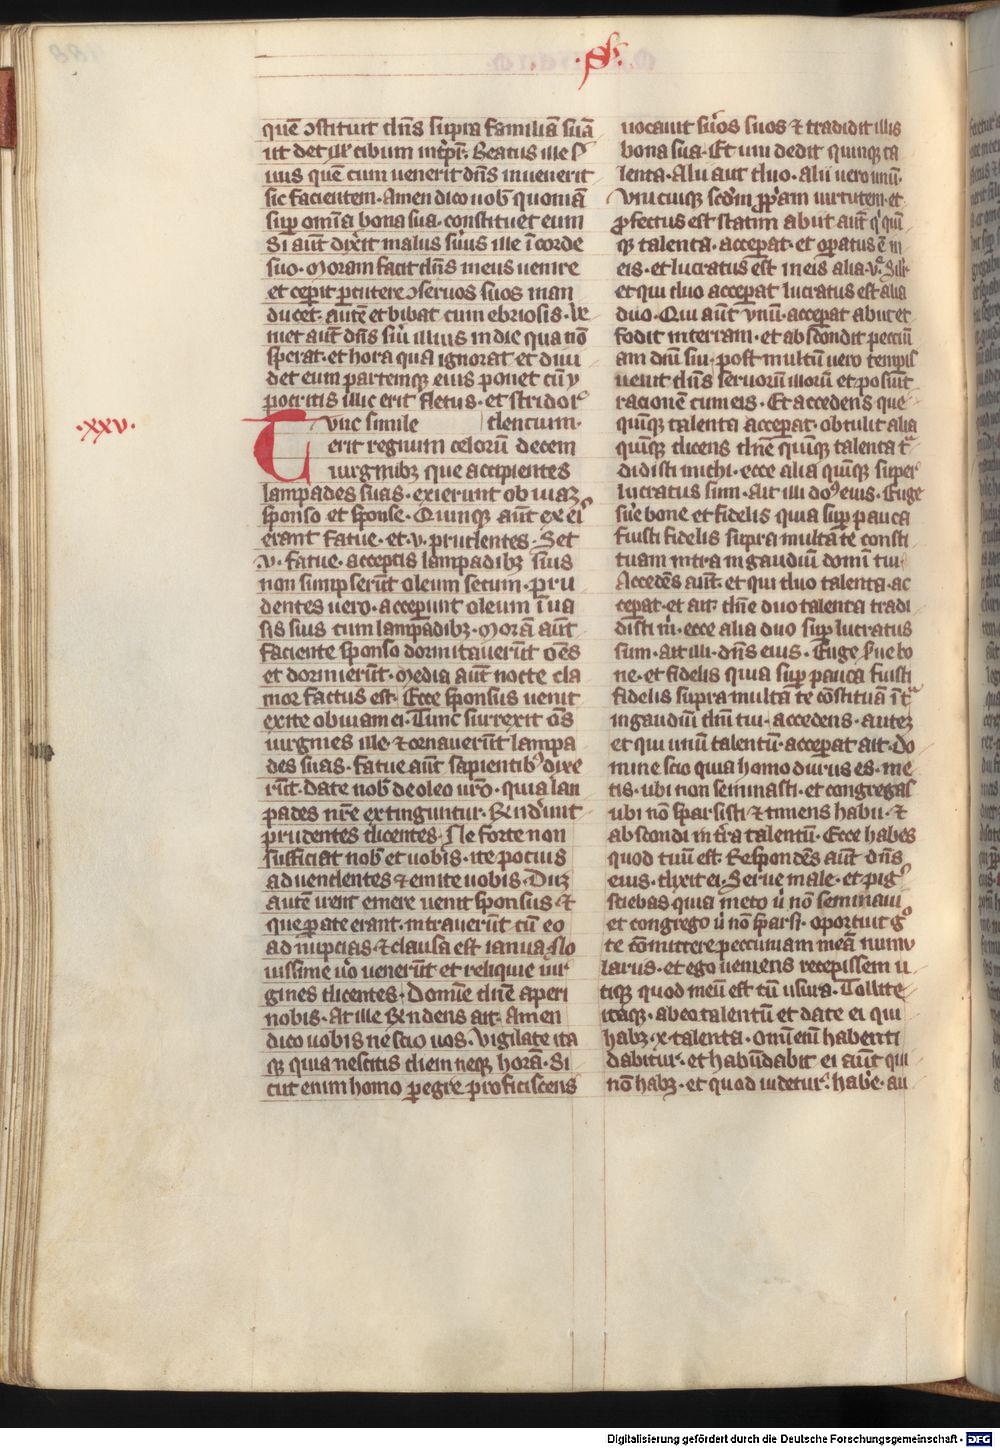 quē ↄstituit dn̄s supra familiā suā
ut det illis cibum in tp̄r. Beatus ille s
uus quē cum uenerit dn̄s inuenerit
sic facientem. Amen dico uob quoniā
sup om̄ia bona sua. constituet eum
Si aut̄ dixit malus suus ille ī corde
suo. Moram facit dn̄s meus uenire
et cepit percutere ↄseruos suos man
ducet. autē et bibat cum ebriosis. Ue
niet aut̄ dn̄s sui illius in die qua nō
sperat. et hora qua ignorat et diui
det eum partemqꝫ eius ponet cū y
pocritis illic erit fletus. et stridor
.xxv.
Tunc simile dencium.
erit regnum celorū decem
uirginibꝫ que accipientes
lampades suas. exierunt obuiaꝫ
sponso et sponse. Quinqꝫ aūt ex ei
erant fatue. et .v. prudentes. Set
.v. fatue. acceptis lampadibꝫ suis
non sumpserūt oleum secum. pru
dentes uero. acceperunt oleum ī ua
sis suis cum lampadibꝫ. Morā aūt
faciente sponso dormitauerūt oēs
et dormierūt. Media aūt nocte cla
mor factus est. Ecce sponsus uenit
exite obuiam ei. Tunc surrexit oēs
uirgines ille. et ornauerūt lampa
des suas. fatue aūt sapientibꝰ dixe
rūt. date nob de oleo uro. quia lan
pades nr̄e extinguntur. Rñderūnt
prudentes dicentes. Ne forte non
sufficiat nob et uobis. ite pocius
ad uendentes et emite uobis. Duꝫ
autē irent emere uenit sponsus et
que parate erant. intrauerūt cū eo
ad nupcias et clausa est ianua. No
uissime uo uenerūt et relique uir
gines dicentes. Domine dn̄e aperi
nobis. At ille respondens ait. Amen
dico uobis nescio uos. Vigilate ita
qꝫ quia nescitis diem neqꝫ horā. Si
cut enim homo peregre proficiscens
uocauit suos suos et tradidit illis
bona sua. Et uni dedit quinqꝫ ta
lenta. Alii aut duo. Alii uero unū.
Vnicuique scdm ppriam uirtutem. et
profectus est statim abiit aūt qi quin
qꝫ talenta. acceperat. et operatus ē in
eis. et lucratus est in eis alia .v. Silr
et qui duo acceperat lucratus est alia
duo. Qui aūt vnū. acceperat abiit et
fodit in terram. et abscondit peccuni
am dn̄i sui. post multū uero tempis
uenit dn̄s seruorū illorū et posuit
racionē cum eis. Et accedens que
quīqꝫ talenta acceperat. obtulit alia
quīqꝫ dicens dn̄e quīqꝫ talenta tr
didisti michi. ecce alia quīqꝫ super
lucratus sum. Ait illi doꝰ eius. Euge
sue bone et fidelis quia sup pauca
fuisti fidelis supra multa te consti
tuam intra in gaudiū domini tui
Accedēs aūt. et qui duo talenta. ac
ceperat. et ait. dn̄e duo talenta tradi
disti m̄. ecce alia duo sup lucratus
sum. ait illi. dn̄s eius. Euge sue bo
ne. et fidelis quia sup pauca fuisti
fidelis supra multa te cōstituā ītra
in gaudiū dn̄i tui. accedens. auteꝫ
et qui unū talentū. acceperat ait. Do
mine scio quia homo durus es. me
tis. ubi non seminasti. et congregas
ubi nō sparsisti et timens habii. et
abscondi in tra talentū. Ecce habes
quod tuū est. Respondēs aūt dn̄s
eius. dixit ei. Serue male. et pigꝰ
sciebas quia meto ubi nō seminaui
et congrego ubi nō sparsi. oportuit gͦ
te cōmittere peccuniam meā numu
larus. et ego ueniens recepissem u
tiqꝫ quod meū est cū usura. Tollite
itaqꝫ. ab eo talentū et date ei qui
habꝫ .x. talenta. omi eni habenti
dabitur. et habūdabit ei aūt qui
nō habꝫ. et quod uidetur. habe. au
Digitalisierung gefördert durch die Deutsche Forschungsgemeinschaft - DFG